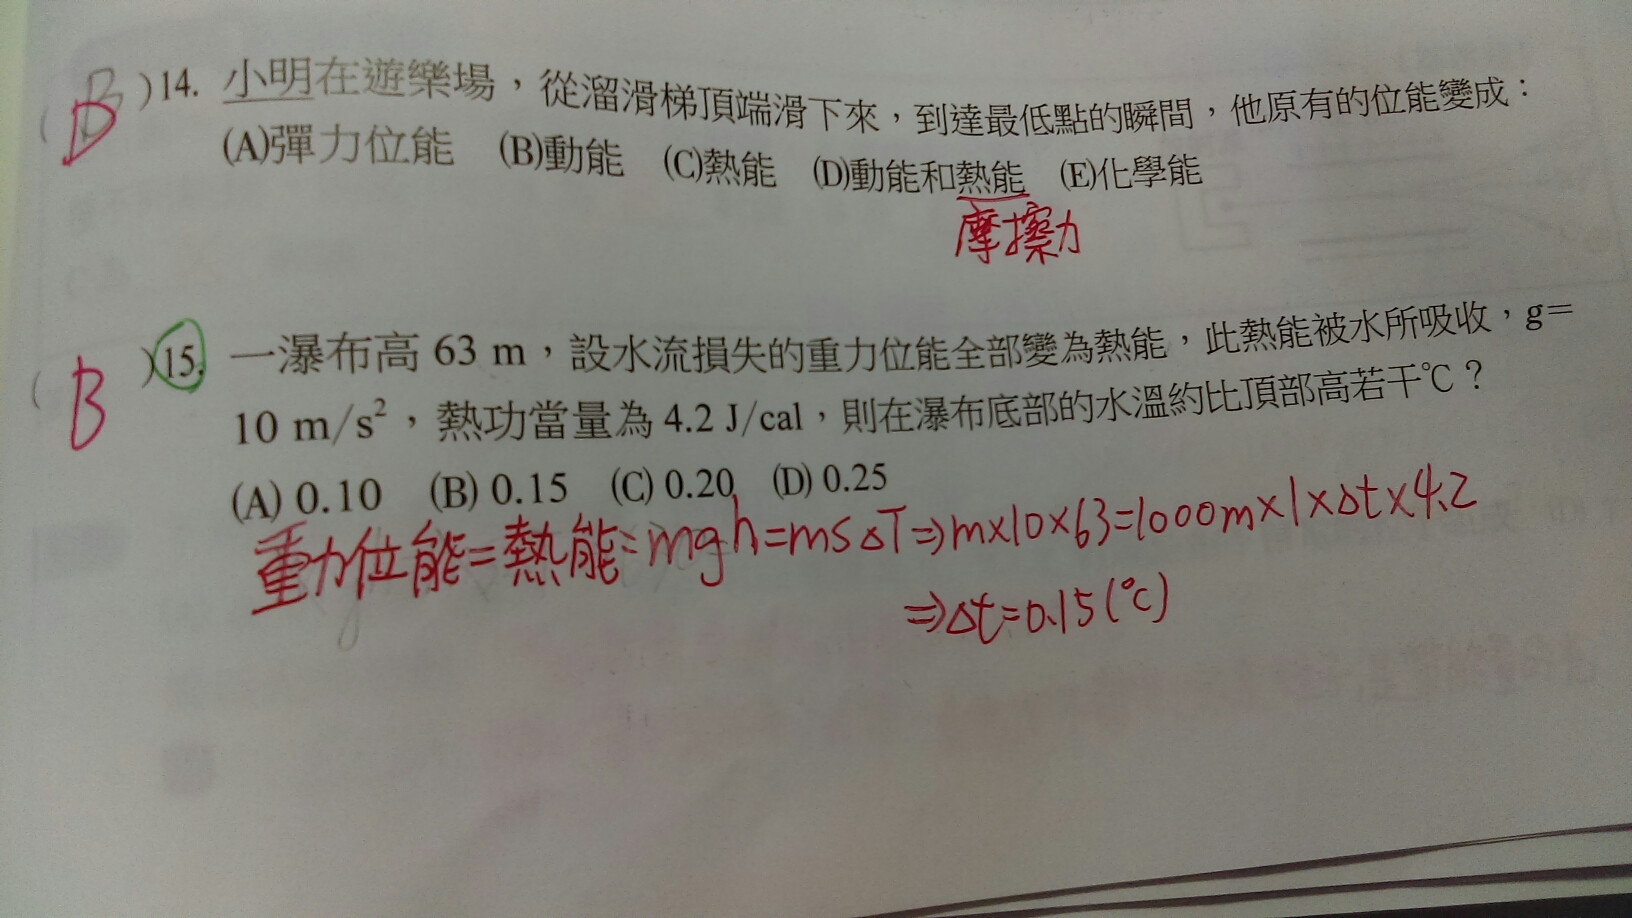 (D)14. 小明在遊樂場，從溜滑梯頂端滑下來，到達最低點的瞬間，他原有的位能變成：
(A)彈力位能 (B)動能 (C)熱能 (D)動能和熱能 (E)化學能
摩擦力
(B)15. 一瀑布高 63 m，設水流損失的重力位能全部變為熱能，此熱能被水所吸收，g=
10 m/s²，熱功當量為 4.2 J/cal，則在瀑布底部的水溫約比頂部高若干℃？
(A) 0.10 (B) 0.15 (C) 0.20 (D) 0.25
重力位能=熱能=mgh=msΔT⇒m×10×63=1000m×1×Δt×4.2
⇒Δt=0.15(℃)